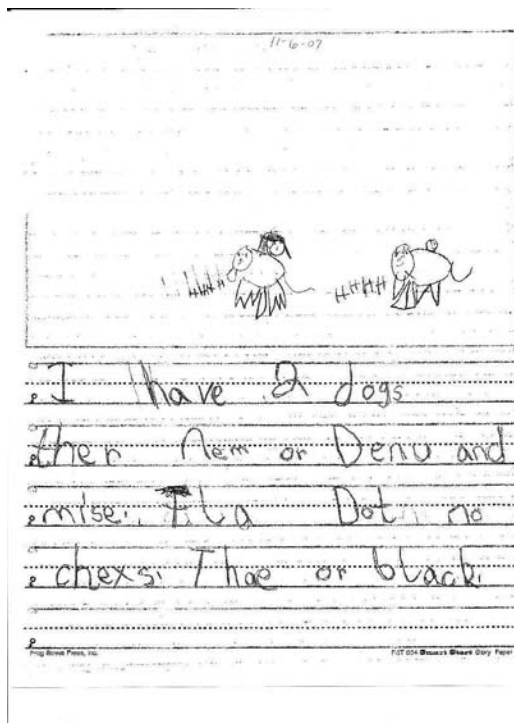 11-6-07
I have 2 dogs
ther nem or Denu and
mise. Tha Dot no
chexs. Thae or black.
Frog Street Press, Inc.
FST 034 Smart Start Story Paper